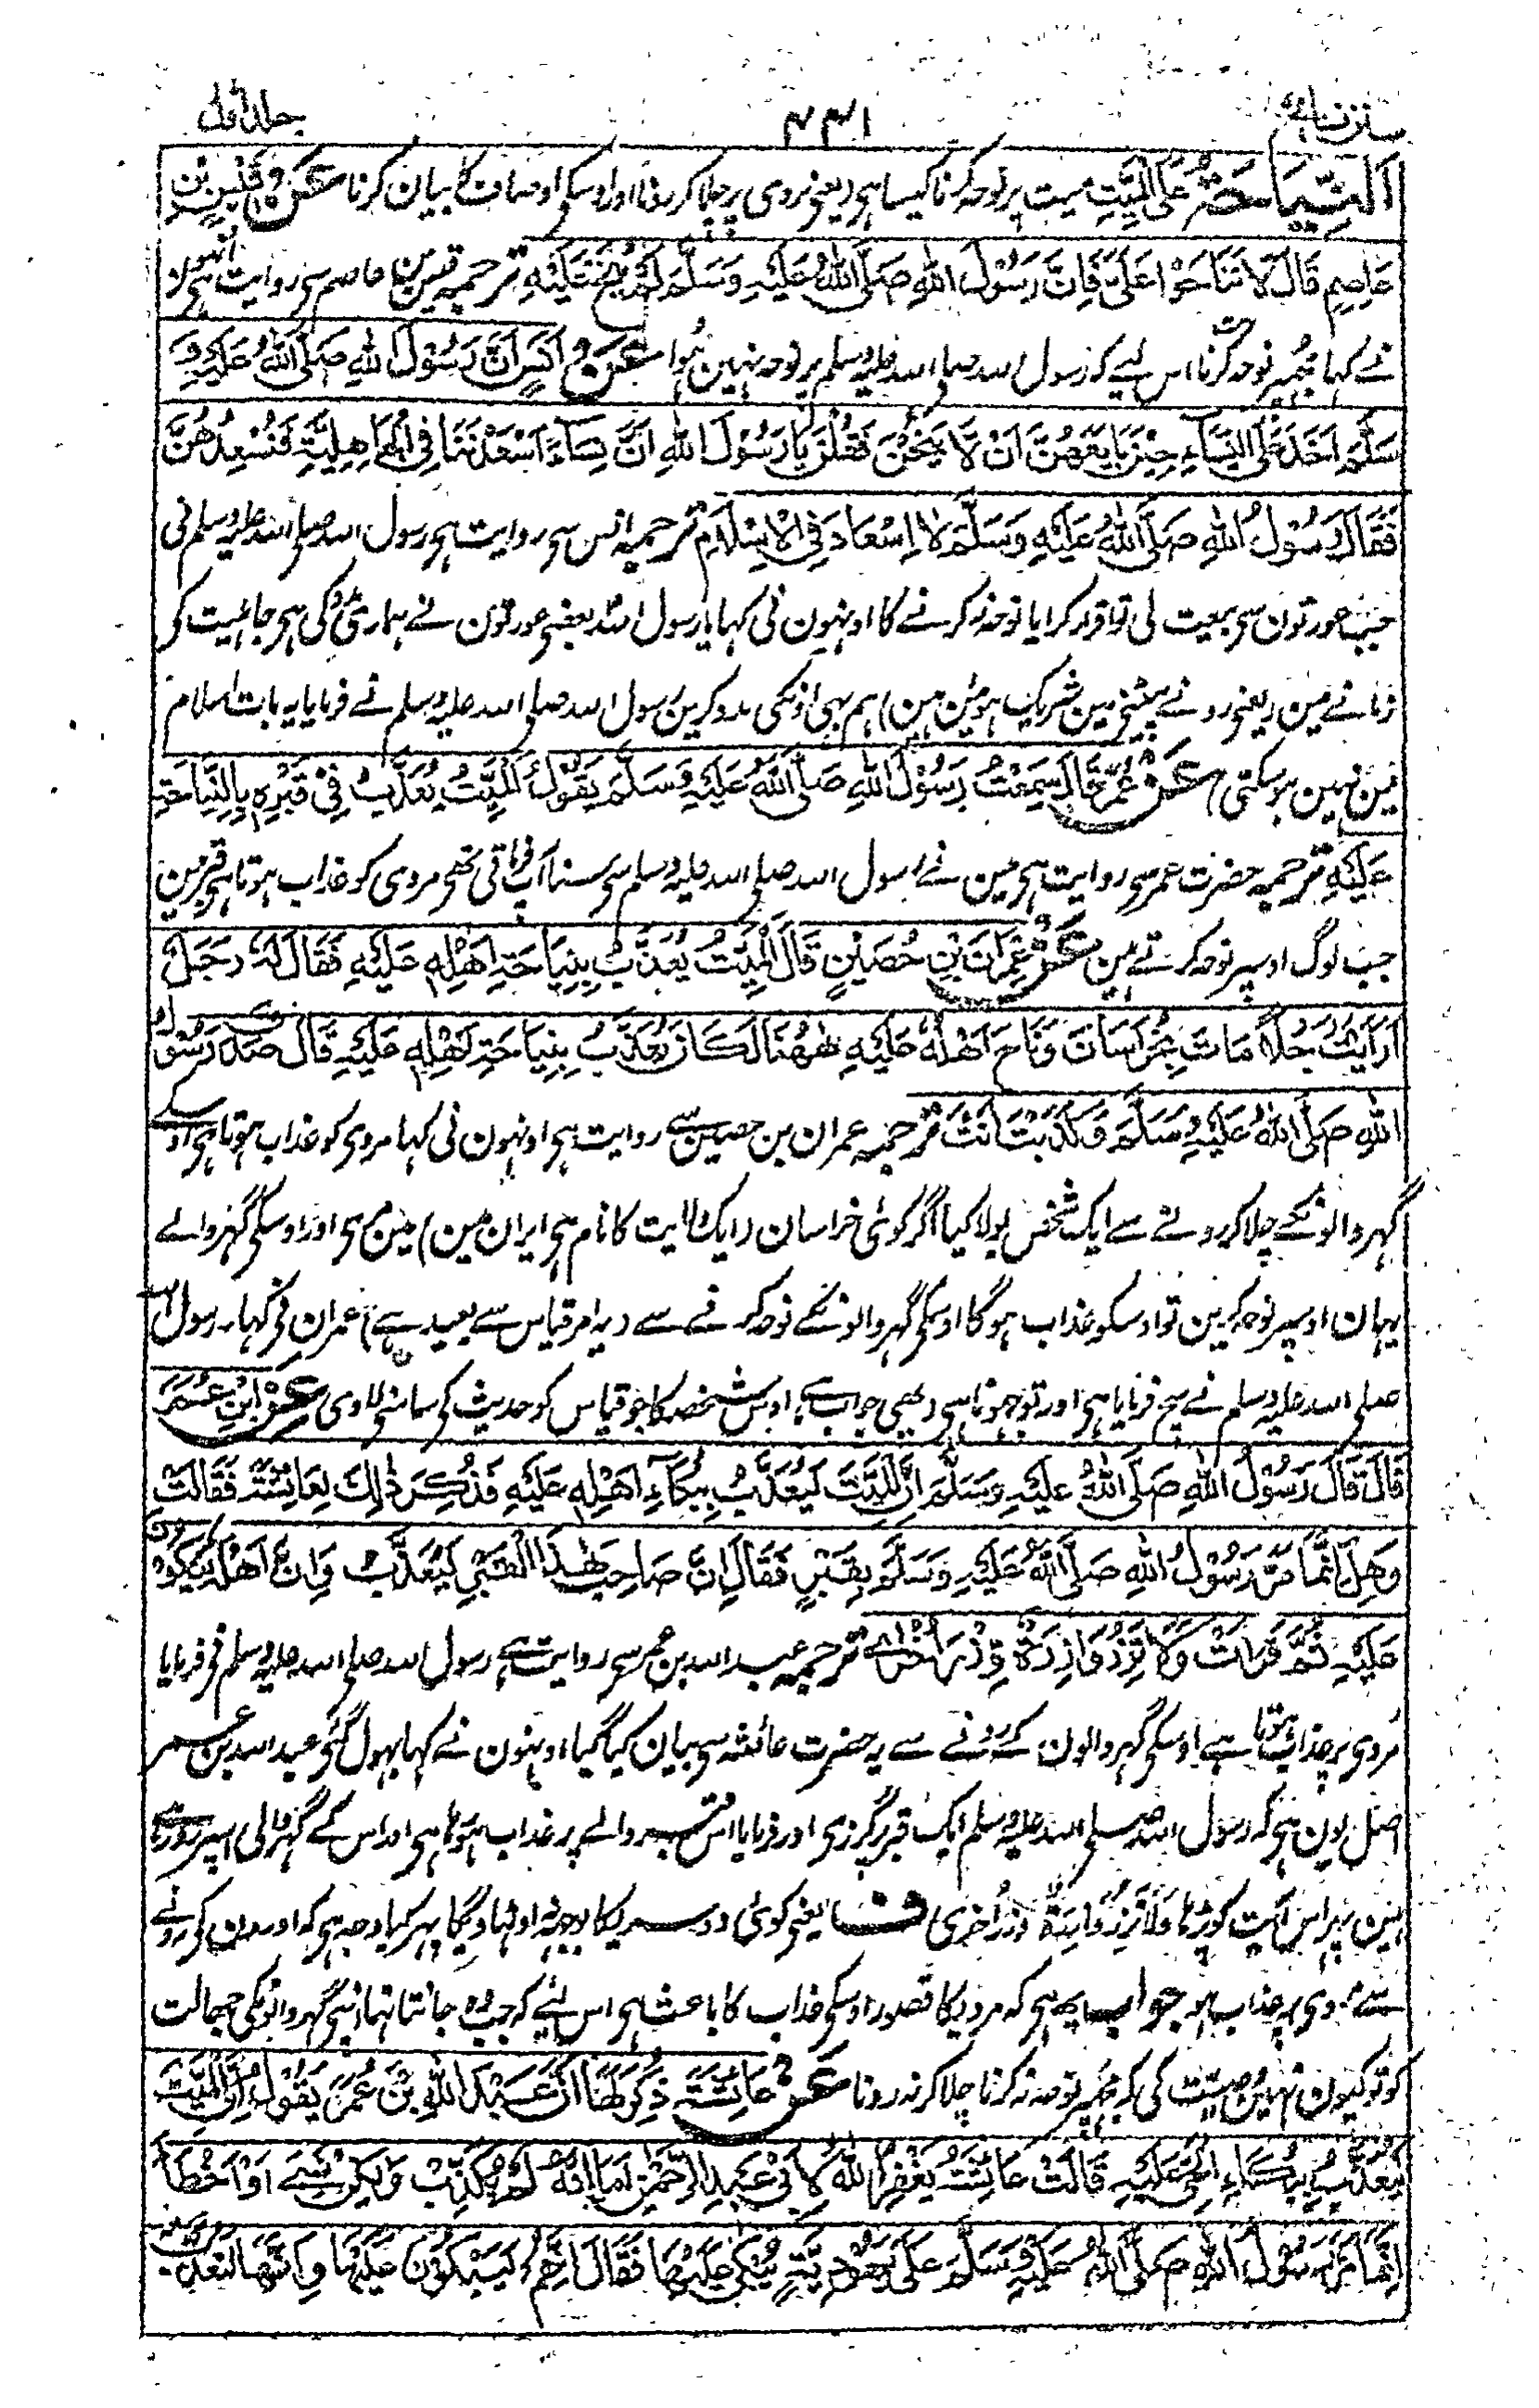 سنن نسائی ۴۴۱ جلد اول
اَلنِّيَاحَةُ عَلَى الْمَيِّتِ میت پر نوحہ کرنا کیسا ہی (یعنی مردی پر چلا کر رونا اور اوسکی اوصاف کا بیان کرنا عَنْ قَيْسِ بْنِ
عَاصِمٍ قَالَ لَا تَنُوحُوا عَلَيَّ فَاِنَّ رَسُوْلَ اللهِ صَلَّى اللهُ عَلَيْهِ وَسَلَّمَ لَمْ يُنَحْ عَلَيْهِ ترجمہ قیس بن عاصم سی روایت ہی انہو
نے کہا مجھپر نوحہ مت کرنا اس لیے کہ رسول اللہ صلی اللہ علیہ وسلم پر نوحہ نہین ہوا عَنْ اَنَسٍ اَنَّ رَسُوْلَ اللهِ صَلَّى اللهُ عَلَيْهِ وَ
سَلَّمَ اَخَذَ عَلَى النِّسَاءِ حِيْنَ بَايَعَهُنَّ اَنْ لَّا يَنُحْنَ فَقُلْنَ يَا رَسُوْلَ اللهِ اِنَّ نِسَاءً اَسْعَدْنَنَا فِي الْجَاهِلِيَّةِ فَنُسْعِدُهُنَّ
فَقَالَ رَسُوْلُ اللهِ صَلَّى اللهُ عَلَيْهِ وَسَلَّمَ لَا اِسْعَادَ فِي الْاِسْلَامِ ترجمہ انس سی روایت ہی رسول اللہ صلی اللہ علیہ وسلم نی
جب عورتون سی بیعت لی تو اقرار کرایا نوحہ نہ کرنے کا اونہون نی کہا یا رسول اللہ بعضی عورتون نے ہماری مدد کی ہی جاہلیت کی
زمانے مین (یعنی رونے پیٹنی مین شریک ہوئین ہین) ہم بہی اونکی مدد کرین رسول اللہ صلی اللہ علیہ وسلم نے فرمایا یہ بات اسلام
مین نہین ہو سکتی عَنْ عُمَرَ قَالَ سَمِعْتُ رَسُوْلَ اللهِ صَلَّى اللهُ عَلَيْهِ وَسَلَّمَ يَقُوْلُ الْمَيِّتُ يُعَذَّبُ فِيْ قَبْرِهِ بِالنِّيَاحَةِ
عَلَيْهِ ترجمہ حضرت عمر سی روایت ہی مین نے رسول اللہ صلی اللہ علیہ وسلم سی سنا آپ فرماتی تھی مردی کو عذاب ہوتا ہی قبر مین
جب لوگ اوسپر نوحہ کرتے ہین عَنْ عِمْرَانَ بْنِ حُصَيْنٍ قَالَ الْمَيِّتُ يُعَذَّبُ بِنِيَاحَةِ اَهْلِهِ عَلَيْهِ فَقَالَ لَهُ رَجُلٌ
اَرَاَيْتَ رَجُلًا مَاتَ بِخُرَاسَانَ وَنَاحَ اَهْلُهُ عَلَيْهِ هٰهُنَا اَكَانَ يُعَذَّبُ بِنِيَاحَةِ اَهْلِهِ عَلَيْهِ قَالَ صَدَقَ رَسُوْلُ
اللهِ صَلَّى اللهُ عَلَيْهِ وَسَلَّمَ وَكَذَبْتَ اَنْتَ ترجمہ عمران بن حصین سے روایت ہی اونہون نی کہا مردی کو عذاب ہوتا ہی اوسکے
گہر والونکے چلا کر رونے سے ایک شخص بولا کیا اگر کوئی خراسان (ایک ولایت کا نام ہی ایران مین) مین مری اور اوسکی گہر والے
یہان اوسپر نوحہ کرین تو اوسکو عذاب ہوگا اوسکی گہر والونکے نوحہ کرنے سے (یہ امر قیاس سے بعید ہے) عمران نی کہا رسول اللہ
صلی اللہ علیہ وسلم نے سچ فرمایا ہی اور تو جہوٹا ہی (یہی جواب ہے اوس شخص کا جو قیاس کو حدیث کی سامنی لاوی عَنْ اِبْنِ عُمَرَ
قَالَ قَالَ رَسُوْلُ اللهِ صَلَّى اللهُ عَلَيْهِ وَسَلَّمَ اِنَّ الْمَيِّتَ لَيُعَذَّبُ بِبُكَاءِ اَهْلِهِ عَلَيْهِ فَذُكِرَ ذٰلِكَ لِعَائِشَةَ فَقَالَتْ
وَهِلَ اِنَّمَا مَرَّ رَسُوْلُ اللهِ صَلَّى اللهُ عَلَيْهِ وَسَلَّمَ بِقَبْرٍ فَقَالَ اِنَّ صَاحِبَ هٰذَا الْقَبْرِ لَيُعَذَّبُ وَاِنَّ اَهْلَهُ يَبْكُوْنَ
عَلَيْهِ ثُمَّ قَرَاَتْ وَلَا تَزِرُ وَازِرَةٌ وِّزْرَ اُخْرٰى ترجمہ عبد اللہ بن عمر سی روایت ہے رسول اللہ صلی اللہ علیہ وسلم نی فرمایا
مردی پر عذاب ہوتا ہے اوسکی گہر والون کے رونے سے یہ حضرت عائشہ سی بیان کیا گیا اونہون نے کہا بہول گئی عبد اللہ بن عمر
اصل یون ہی کہ رسول اللہ صلی اللہ علیہ وسلم ایک قبر پر گزری اور فرمایا اس قبر والے پر عذاب ہوتا ہی اور اس کے گہر والی اسپر رو رہے
ہین پہر اس آیت کو پڑہا وَلَا تَزِرُ وَازِرَةٌ وِّزْرَ اُخْرٰى ف یعنی کوئی دوسریکا بوجہہ نہ اوٹہاویگا پہر کیا وجہ ہی کہ اورون کی رونے
سے مردی پر عذاب ہو جواب یہ ہی کہ مردیکا قصور اوسکی عذاب کا باعث ہی اس لئے کہ جب وہ جانتا تہا اپنی گہر والونکی جہالت
کو تو کیون نہین وصیت کی کہ مجھپر نوحہ نہ کرنا چلا کر نہ رونا عَنْ عَائِشَةَ ذُكِرَ لَهَا اَنَّ عَبْدَ اللهِ بْنَ عُمَرَ يَقُوْلُ اِنَّ الْمَيِّتَ
لَيُعَذَّبُ بِبُكَاءِ الْحَيِّ عَلَيْهِ قَالَتْ عَائِشَةُ يَغْفِرُ اللهُ لِاَبِيْ عَبْدِ الرَّحْمٰنِ اَمَا اِنَّهُ لَمْ يَكْذِبْ وَلٰكِنْ نَسِيَ اَوْ اَخْطَاَ
اِنَّمَا مَرَّ رَسُوْلُ اللهِ صَلَّى اللهُ عَلَيْهِ وَسَلَّمَ عَلٰى يَهُوْدِيَّةٍ يُبْكٰى عَلَيْهَا فَقَالَ اِنَّهُمْ لَيَبْكُوْنَ عَلَيْهَا وَاِنَّهَا لَتُعَذَّبُ